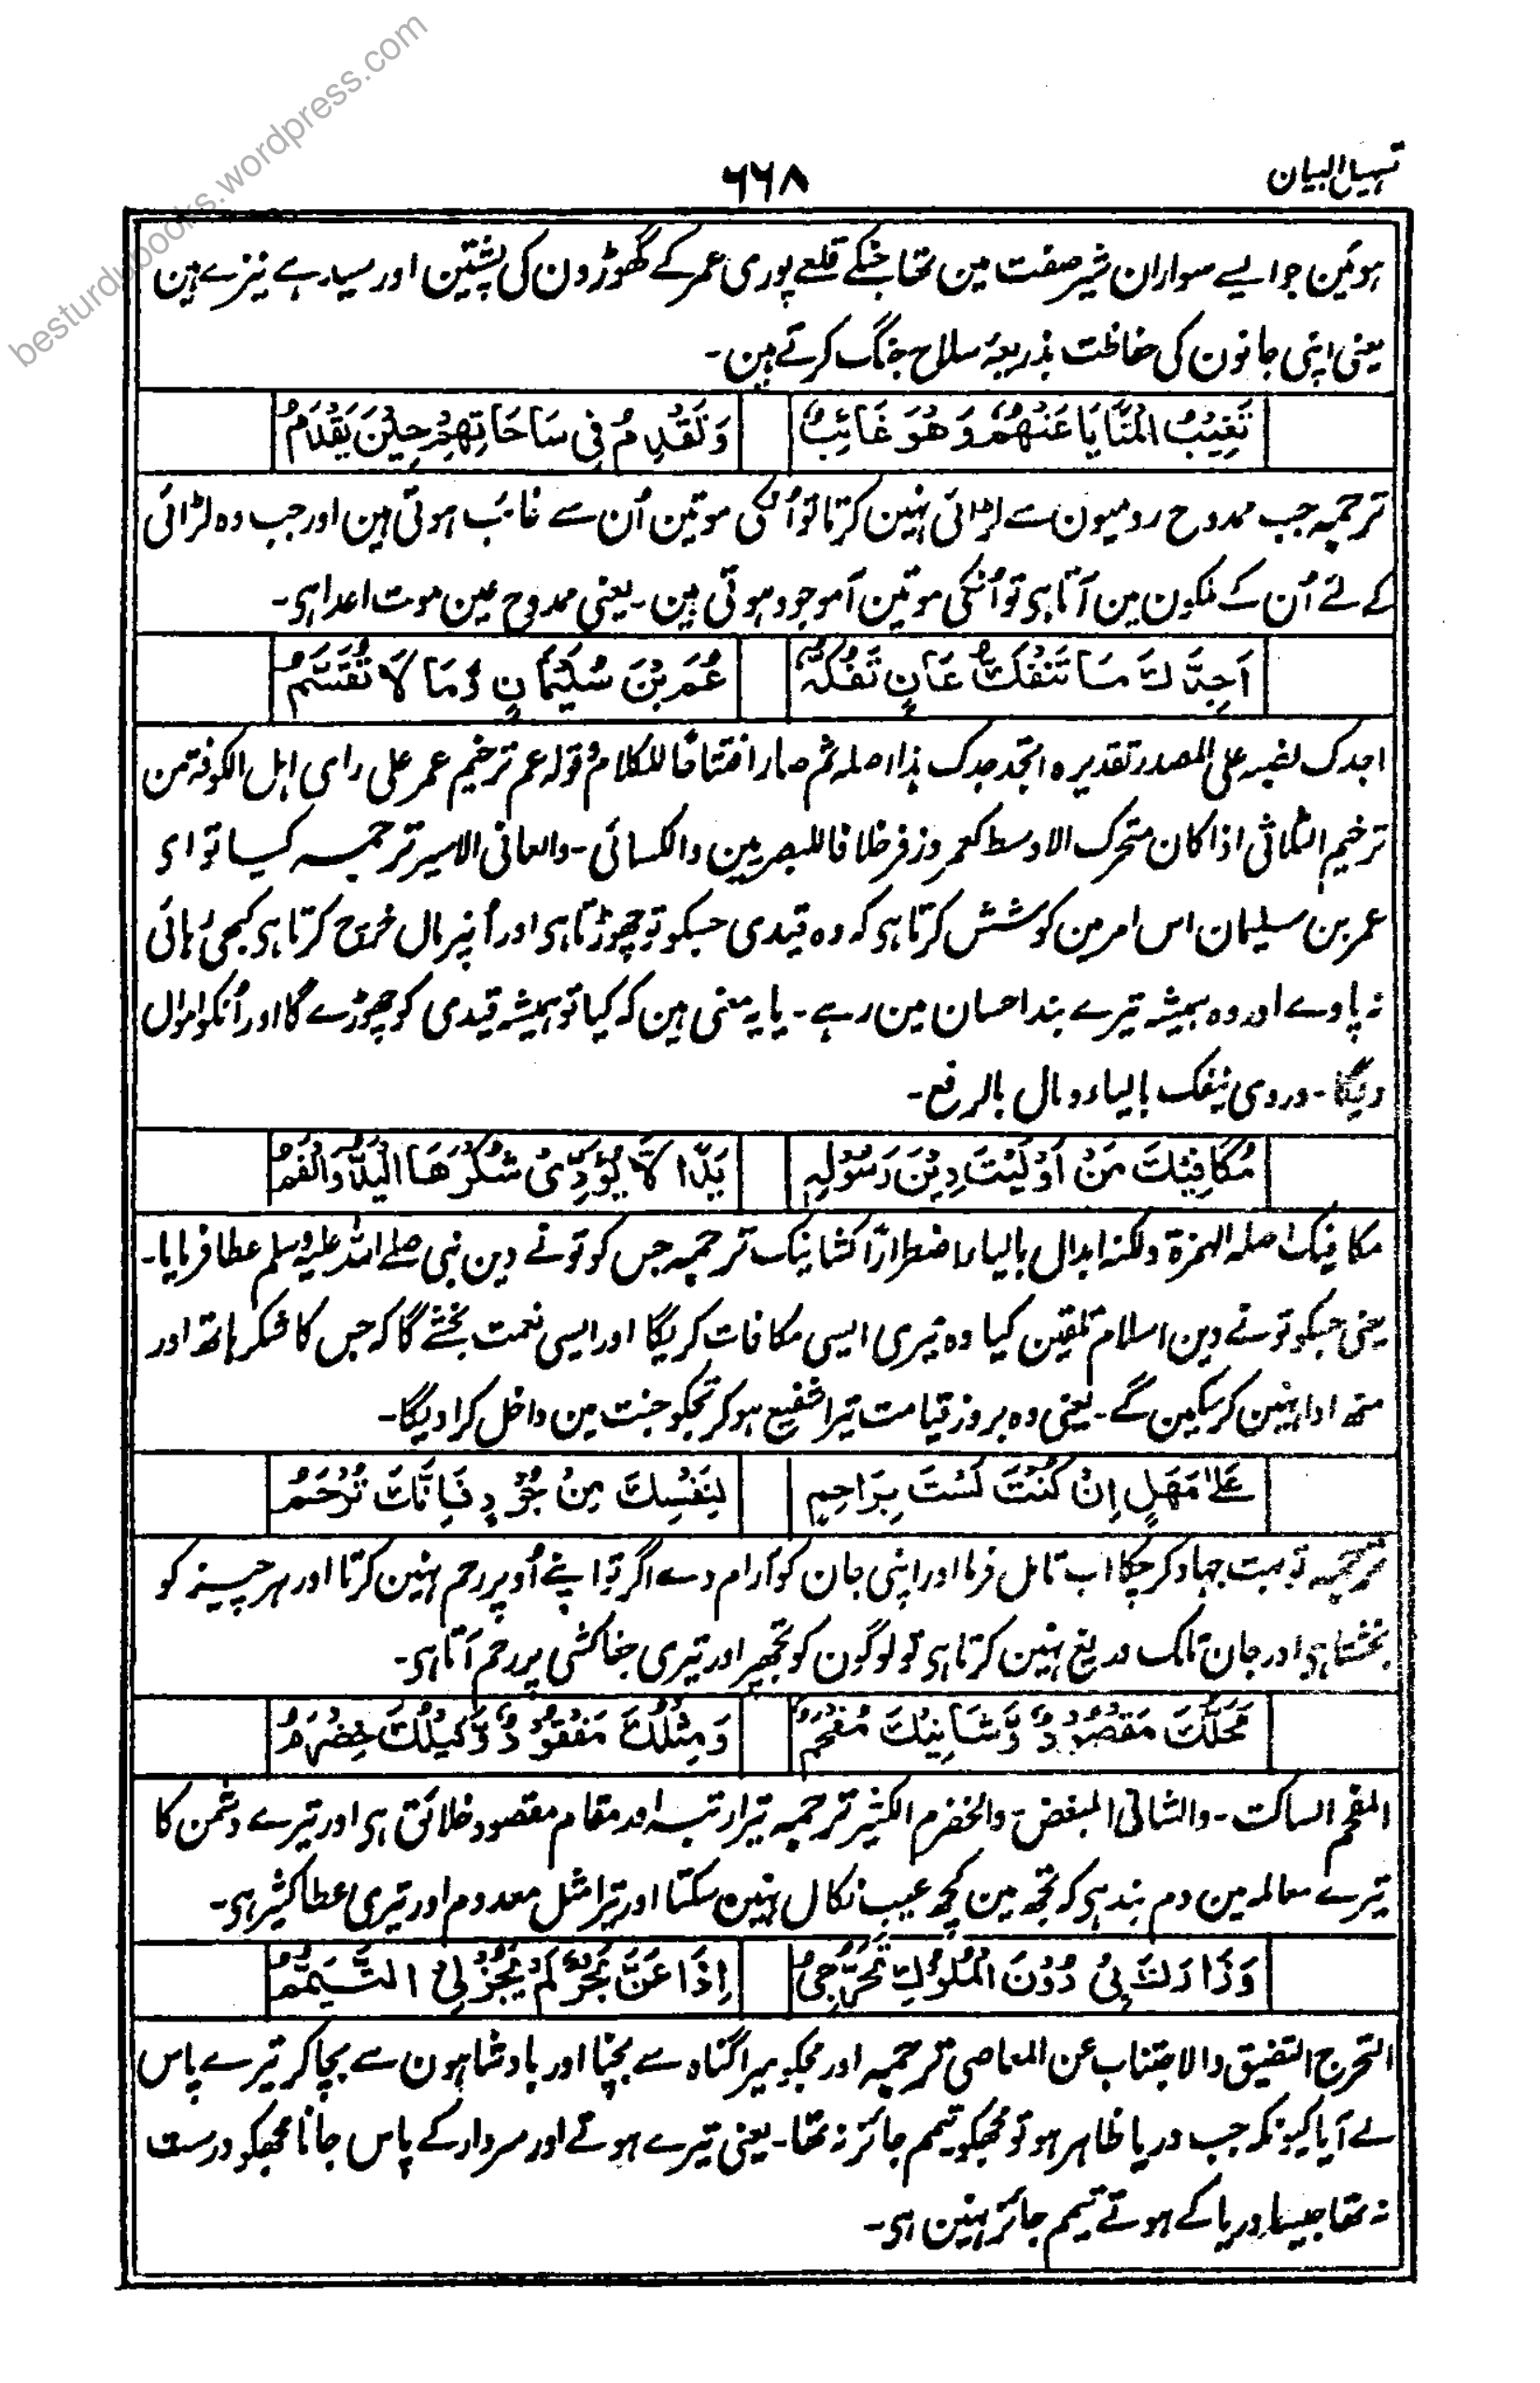 besturdubooks.wordpress.com
تسہیل البیان
۶۶۸
ہوئین جو ایسے سواران شیر صفت مین تھا جنکے قلعے پوری عمر کے گھوڑون کی پشتین اور سیدہے نیزے ہین
یعنی اپنی جانون کی حفاظت بذریعۂ سلاح جنگ کرتے ہین۔
تَغِيْبُ الْمَنَايَا عَنْهُمْ وَهُوَ غَائِبٌ وَتَقْدِمُ فِي سَاحَاتِهِمْ حِيْنَ يَقْدَمُ
ترجمہ جب ممدوح رومیون سے لڑائی نہین کرتا تو اُنکی موتین اُن سے غائب ہوتی ہین اور جب وہ لڑائی
کے لئے اُن کے ملکون مین آتا ہی تو اُنکی موتین آموجود ہوتی ہین۔ یعنی ممدوح عین موت اعدا ہی۔
اَجِدَّكَ مَا تَنْفَكُّ عَانٍ تَفُكُّهُ عُمَ بْنَ سُلَيْمَانٍ وَمَا لَا تُقَسِّمُ
اجدک نصبہ علی المصدر تقدیرہ اتجد جدک ہذا اصلہ ثم صار افتتاحًا للکلام وقولہ عم ترخیم عمر علی رای اہل الکوفۃ من
ترخیم الثلاثی اذا کان متحرک الاوسط کعمر وزفر خلافا للبصریین والکسائی۔ والعانی الاسیر ترجمہ کیا تو ای
عمر بن سلیمان اس امر مین کوشش کرتا ہی کہ وہ قیدی جسکو تو چھوڑتا ہی اور اُنپر مال خرچ کرتا ہی کبھی رہائی
نہ پاوے اور وہ ہمیشہ تیرے بند احسان مین رہے۔ یا یہ معنی ہین کہ کیا تو ہمیشہ قیدی کو چھوڑے گا اور اُنکو اموال
دیگا۔ وروی ینفک بالیاء ومال بالرفع۔
مُكَافِيْكَ مَنْ اَوْلَيْتَ دِيْنَ رَسُوْلِهٖ يَدًا لَا يُؤَدِّيْ شُكْرَهَا الْيَدُ وَالْفَمُ
مکافیک اصلہ الہمزۃ ولکنہ ابدال بالیاء اضطرارًا کشانیک ترجمہ جس کو تو نے دین نبی صلے اللہ علیہ وسلم عطا فرمایا۔
یعنی جسکو تو نے دین اسلام تلقین کیا وہ تیری ایسی مکافات کریگا اور ایسی نعمت بخشے گا کہ جس کا شکر ہاتھ اور
منھ ادا نہین کر سکین گے۔ یعنی وہ بروز قیامت تیرا شفیع ہو کر تجکو جنت مین داخل کرا دیگا۔
عَلٰى مَهَلٍ اِنْ كُنْتَ لَسْتَ بِرَاحِمٍ لِنَفْسِكَ مِنْ جُوْدٍ فَاِنَّكَ تُرْحَمُ
ترجمہ تو بہت جہاد کر چکا اب تامل فرما اور اپنی جان کو آرام دے اگر تو اپنے اُوپر رحم نہین کرتا اور ہر چیز کو
بخشتا ہی اور جان تلک دریغ نہین کرتا ہی تو لوگون کو تجھپر اور تیری جفاکشی پر رحم آتا ہی۔
مَحَلُّكَ مَقْصُوْدٌ وَّشَانِيْكَ مُفْحَمٌ وَمِثْلُكَ مَفْقُوْدٌ وَّنَيْلُكَ خِضْرِمُ
المفحم الساکت۔ والشانی المبغض۔ والخضرم الکثیر ترجمہ تیرا رتبہ اور مقام مقصود خلائق ہی اور تیرے دشمن کا
تیرے معاملہ مین دم بند ہی کہ تجھ مین کچھ عیب نکال نہین سکتا اور تیرا مثل معدوم اور تیری عطا کثیر ہی۔
وَزَادَكَ بِيْ دُوْنَ الْمُلُوْكِ تَحَرُّجِيْ اِذَا عَنَّ بَحْرٌ لَمْ يَجُزْ لِيْ التَّيَمُّمُ
التحرج التضیق والاجتناب عن المعاصی ترجمہ اور مجکو میرا گناہ سے بچنا اور بادشاہون سے بچا کر تیرے پاس
لے آیا کیونکہ جب دریا ظاہر ہو تو مجھکو تیمم جائز نہ تھا۔ یعنی تیرے ہوتے اور سردار کے پاس جانا مجھکو درست
نہ تھا جیسا دریا کے ہوتے تیمم جائز نہین ہی۔